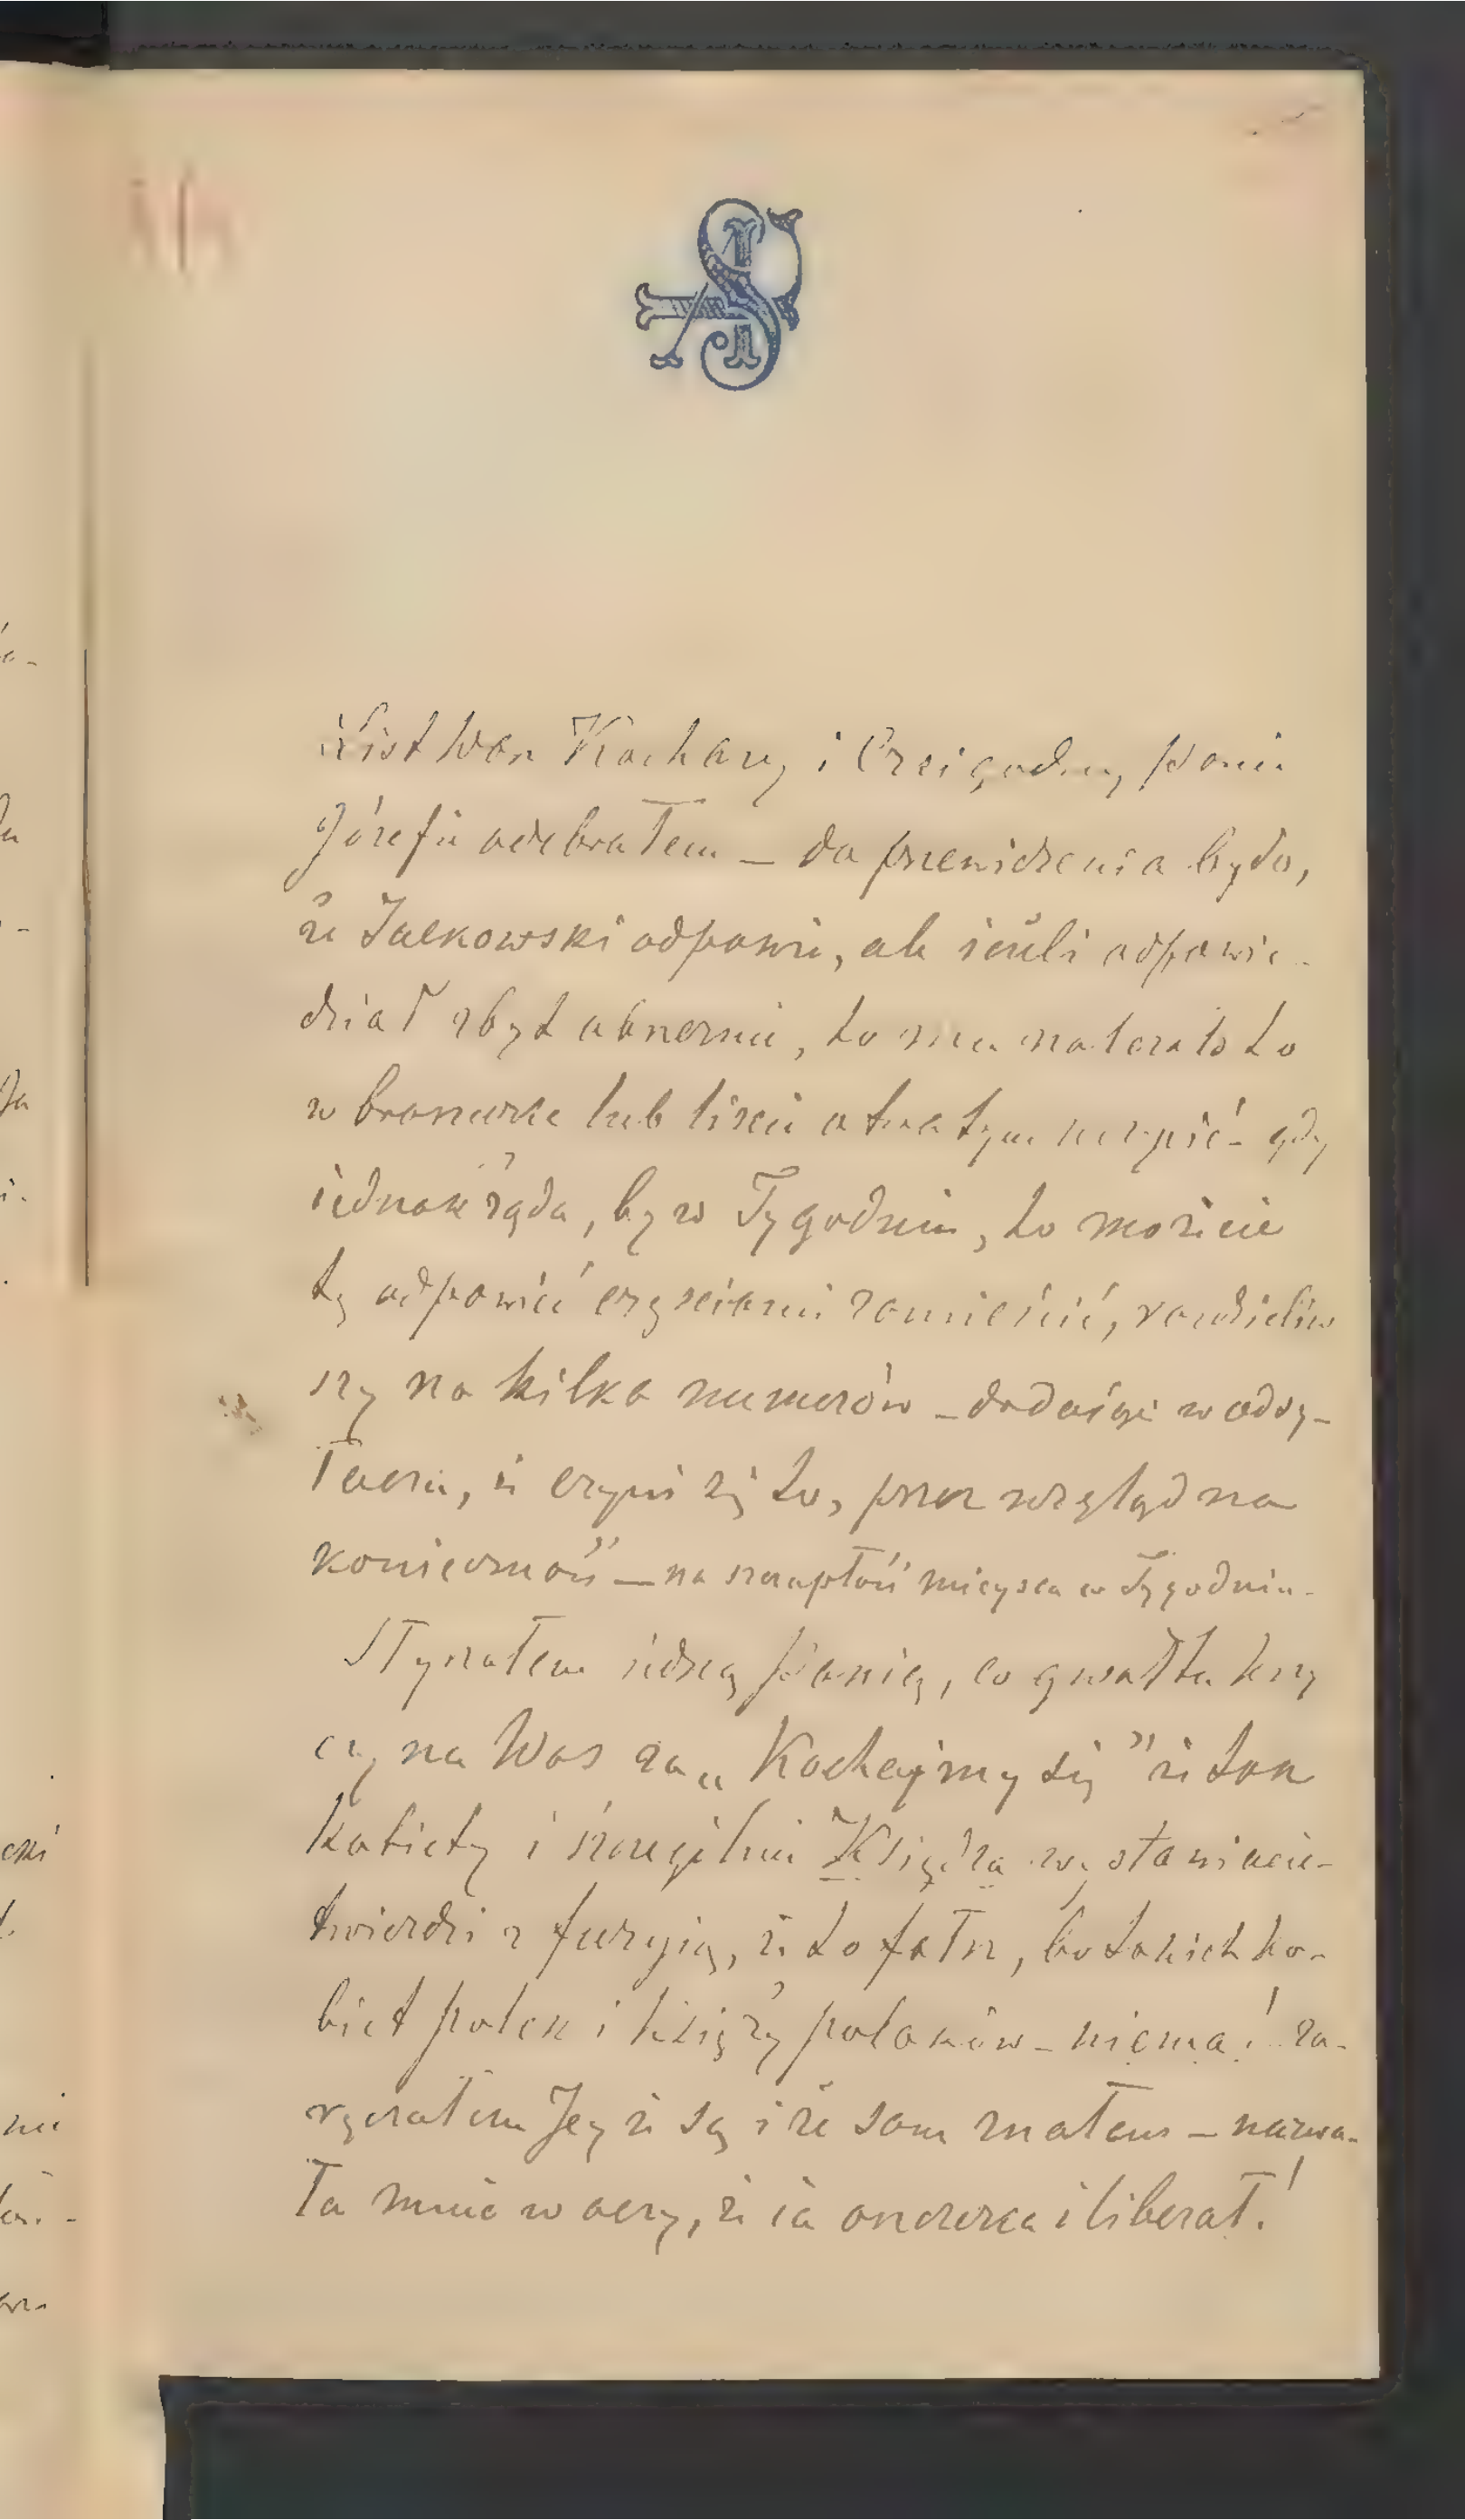 List Wan Kochany i Czcigodny Panie
Józefie odebrałem – do przewidzenia było,
że Jałkowski odpowie, ale ieżeli odpowie-
dział zbyt obszernie, to mu należało to
w broszurce lub liście otwartym uczynić – gdy
iednak żąda, by w Tygodniu, to możecie
tę odpowiedź częściami zamieścić, rozdzieliw
szy na kilka numerów – dodaiąc w odsy-
łaczu, że czyni się to, przez wzgląd na
konieczność – na szczupłość mieysca w Tygodniu.
Słyszałem iedną Panią, co gwałtu krzy
czy na Was za „Kochajmy się" że tak
kobiety i szczególnie Księdza wystawiacie –
twierdzi z furyią, że to fałsz, bo takich ko-
biet polek i księży polaków – niema! za-
ręczałem Jey że są i że sam znałem – nazwa-
ła mnie w oczy, że ia oszczerca i liberał!